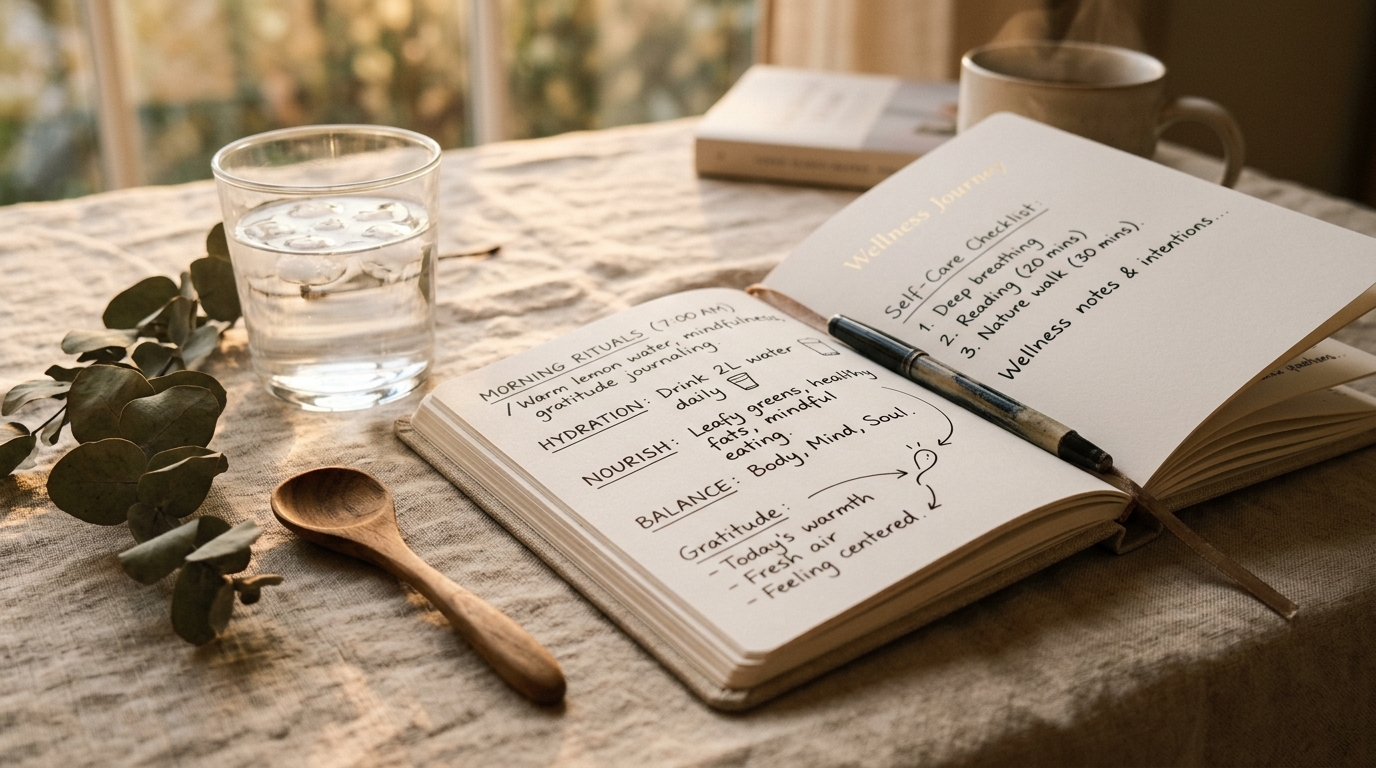 MORNING RITUALS (7:00 AM)
/ Warm lemon water, mindfulness,
gratitude journaling.
HYDRATION: Drink 2L water
daily
NOURISH: Leafy greens, healthy
fats, mindful
eating
BALANCE: Body, Mind, Soul.
Gratitude:
- Today's warmth
- Fresh air
- Feeling centered.
Wellness Journey
Self-Care Checklist:
1. Deep breathing
2. Reading (20 mins)
3. Nature walk (30 mins).
Wellness notes & intentions...